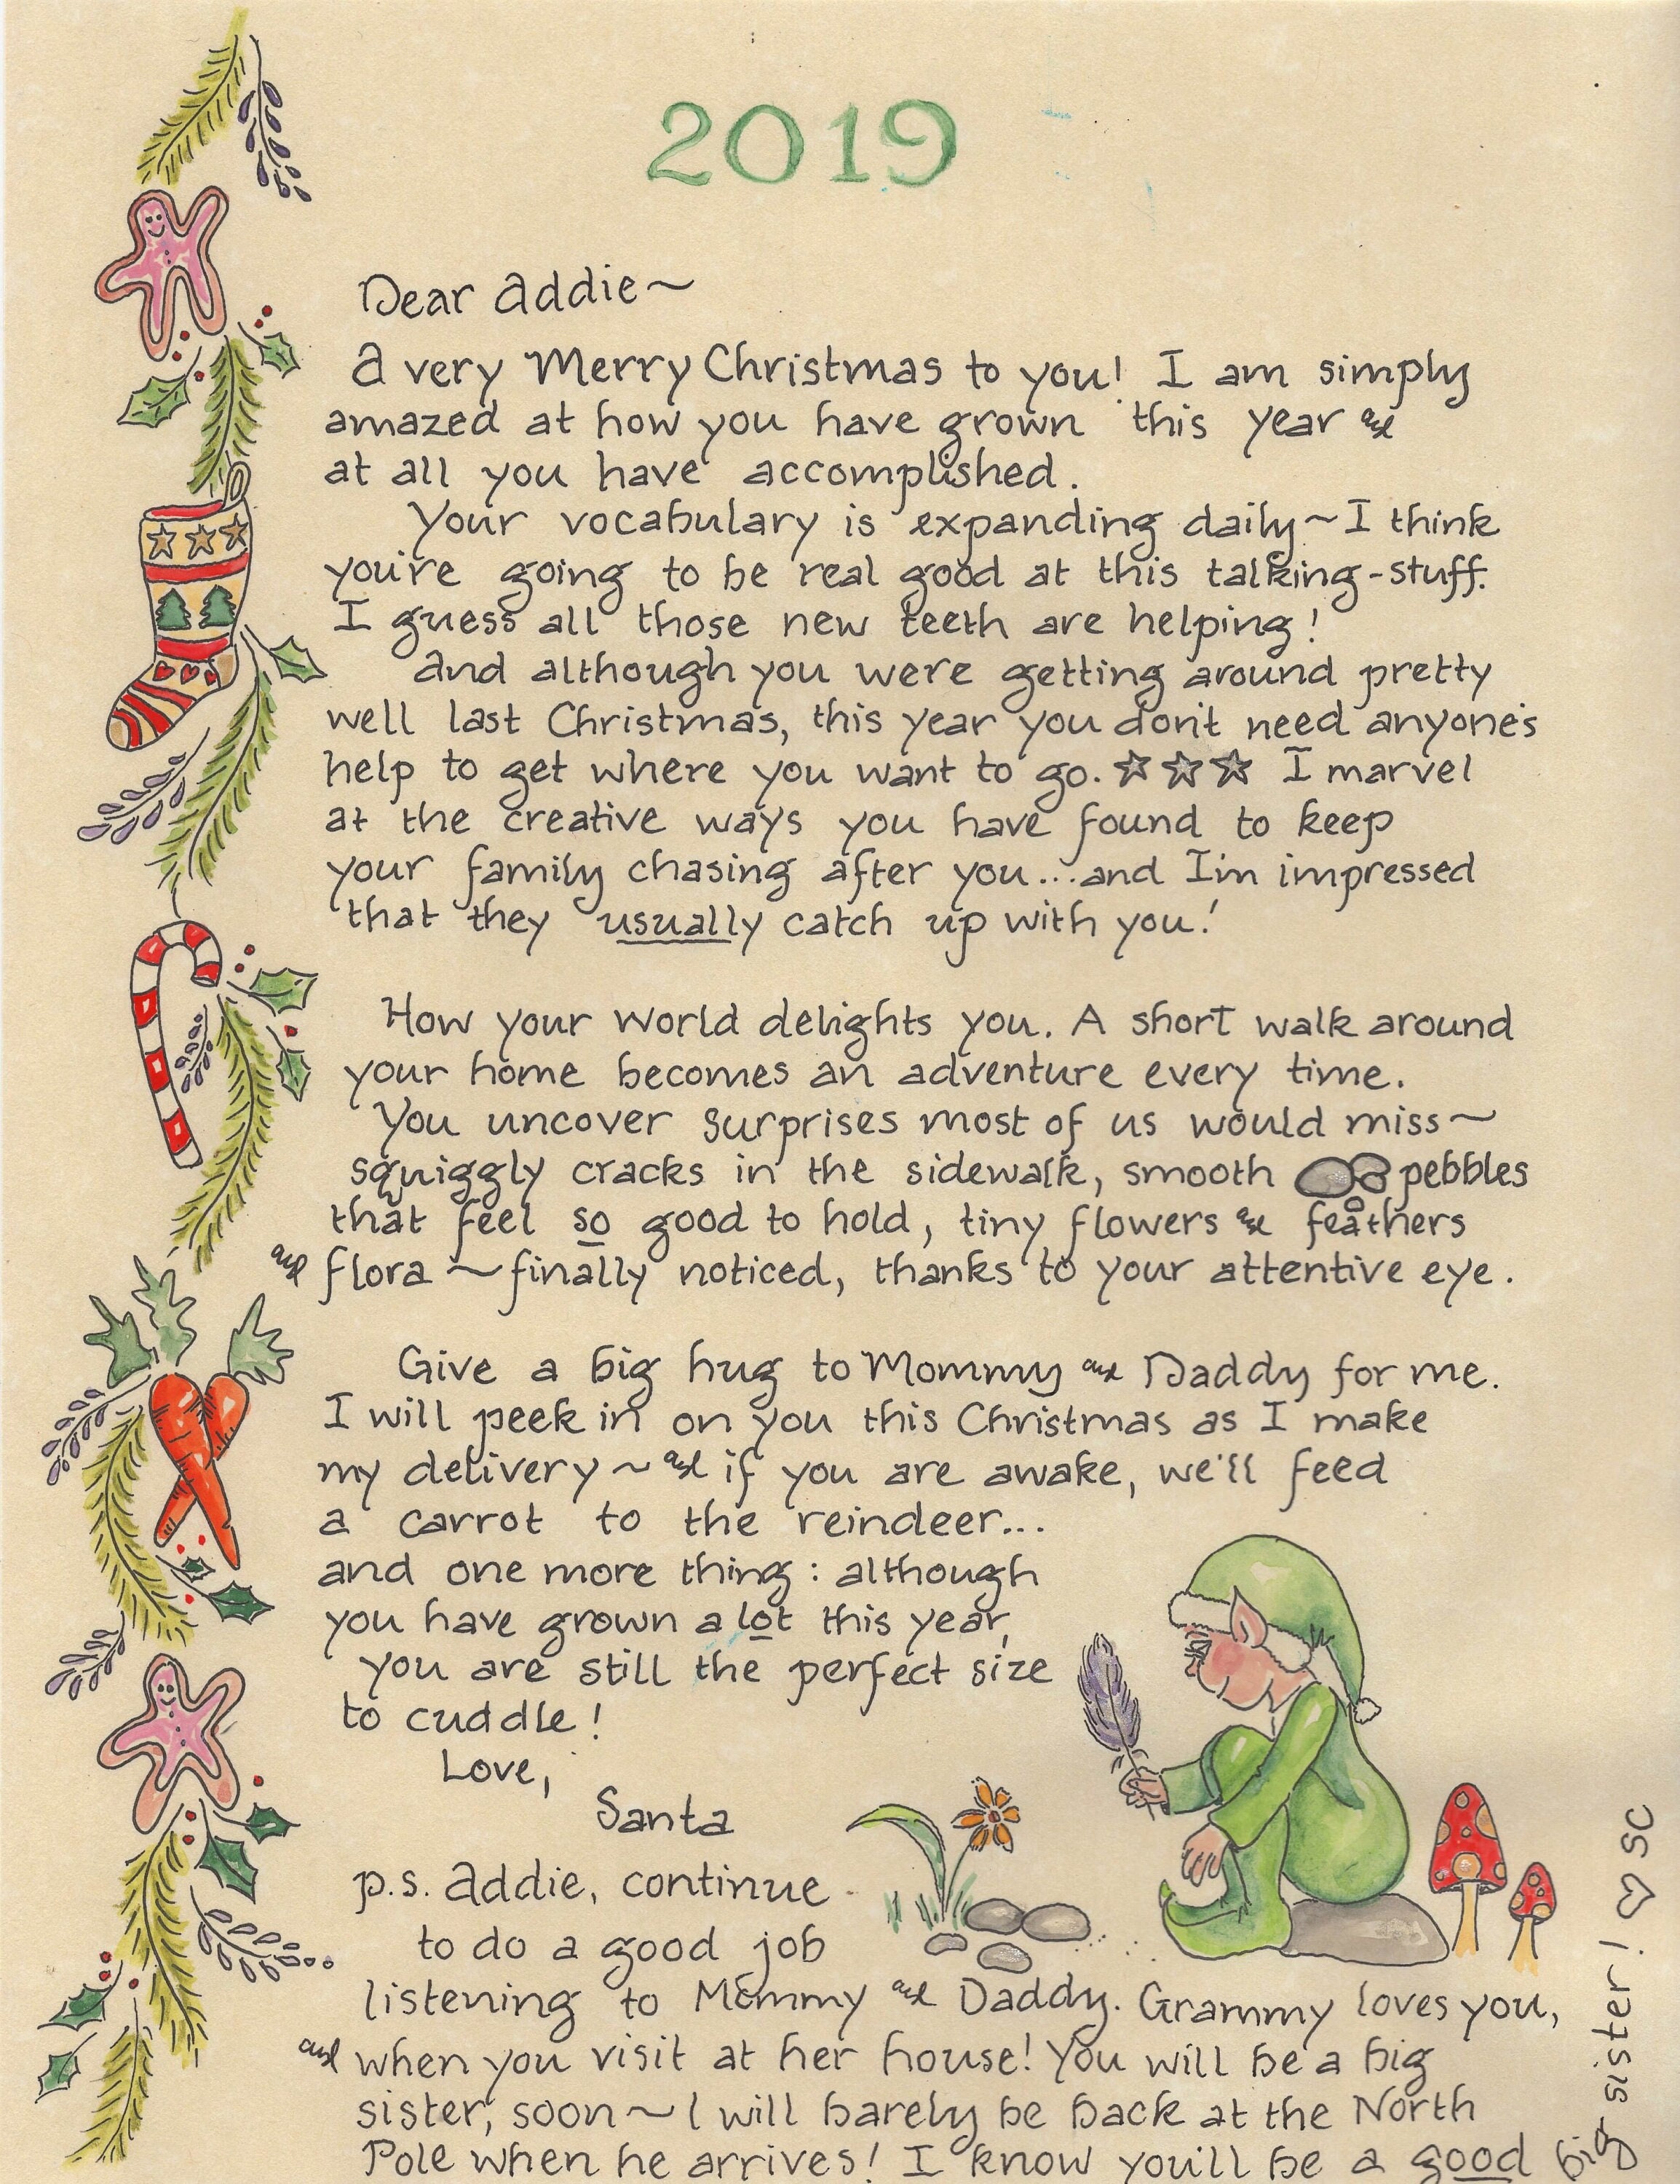 2019
Dear Addie~
A very Merry Christmas to you! I am simply
amazed at how you have grown this year and
at all you have accomplished.
Your vocabulary is expanding daily~I think
you're going to be real good at this talking-stuff.
I guess all those new teeth are helping!
And although you were getting around pretty
well last Christmas, this year you don't need anyone's
help to get where you want to go. ☆☆☆ I marvel
at the creative ways you have found to keep
your family chasing after you...and I'm impressed
that they usually catch up with you!
How your world delights you. A short walk around
your home becomes an adventure every time.
You uncover surprises most of us would miss~
squiggly cracks in the sidewalk, smooth pebbles
that feel so good to hold, tiny flowers and feathers
and flora ~ finally noticed, thanks to your attentive eye.
Give a big hug to Mommy and Daddy for me.
I will peek in on you this Christmas as I make
my delivery ~ and if you are awake, we'll feed
a carrot to the reindeer...
and one more thing: although
you have grown a lot this year,
you are still the perfect size
to cuddle!
Love,
Santa
p.s. Addie, continue
to do a good job
listening to Mommy and Daddy. Grammy loves you,
and when you visit at her house! You will be a big
sister, soon~I will barely be back at the North
Pole when he arrives! I know you'll be a good big
sister! ♡ SC